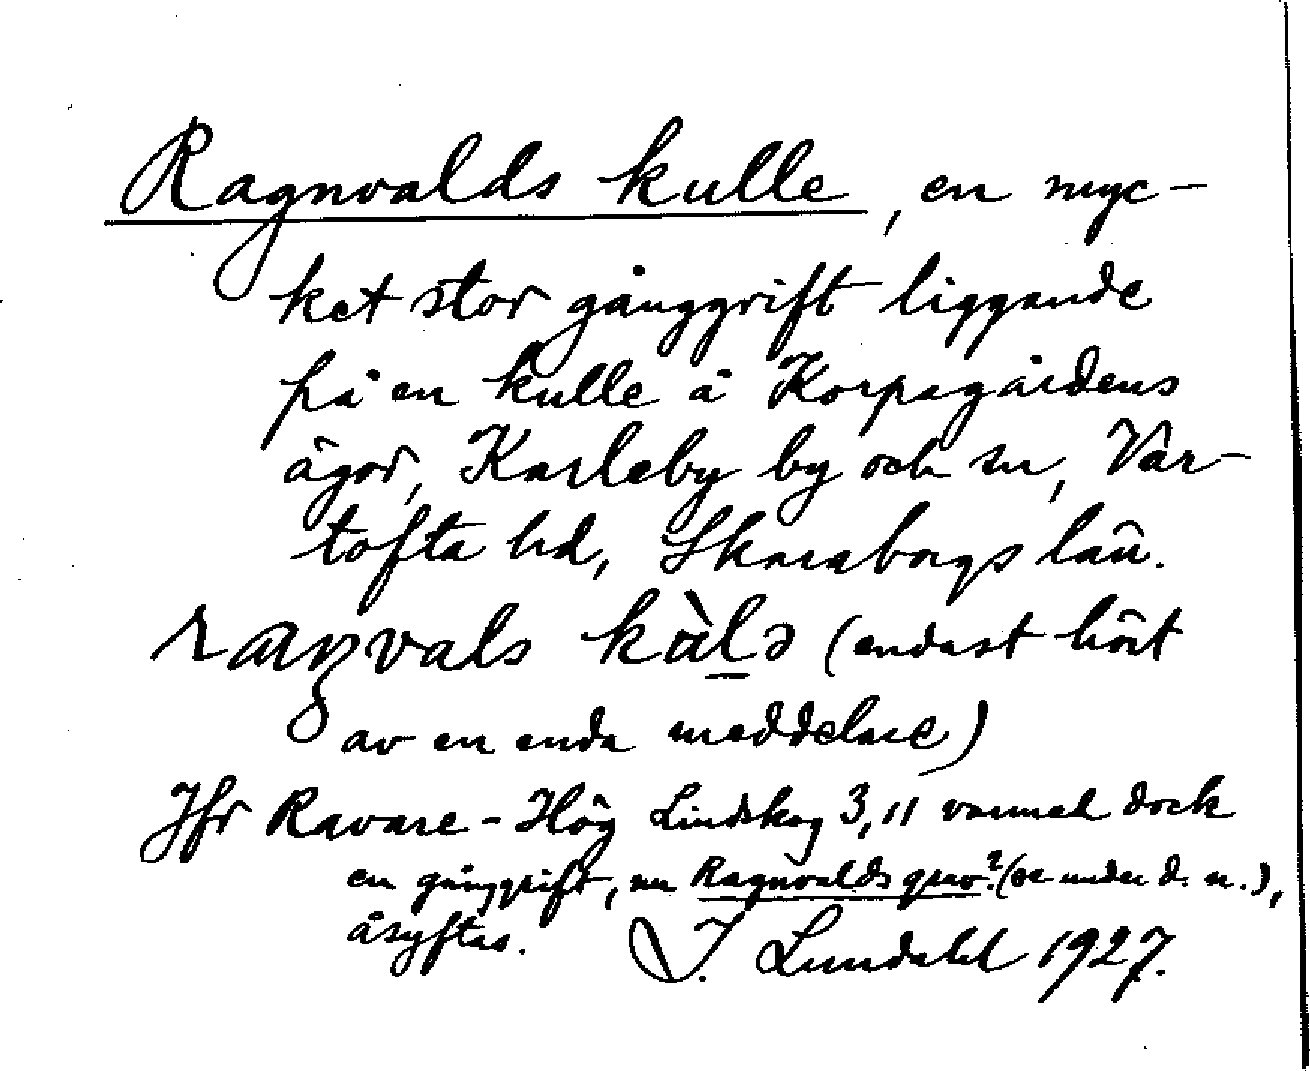 Ragnvalds kulle, en myc-
ket stor gånggrift liggande
på en kulle å Korpagårdens
ägor, Karleby by och sn, Vår-
tofta hd, Skaraborgs län.
raŋvals kàlə (endast hört
av en enda meddelare)
Jfr Ravare-Hög Lindskog 3,11 varmed dock
en gånggrift, nu Ragnvalds grav? (se under d. n.),
åsyftas. I. Lundahl 1927.